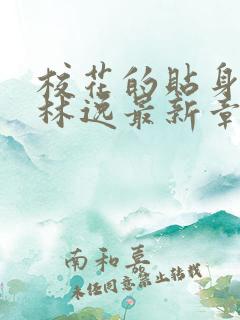 校花的貼身
林逸最新章
南和真
未经同意禁止转载